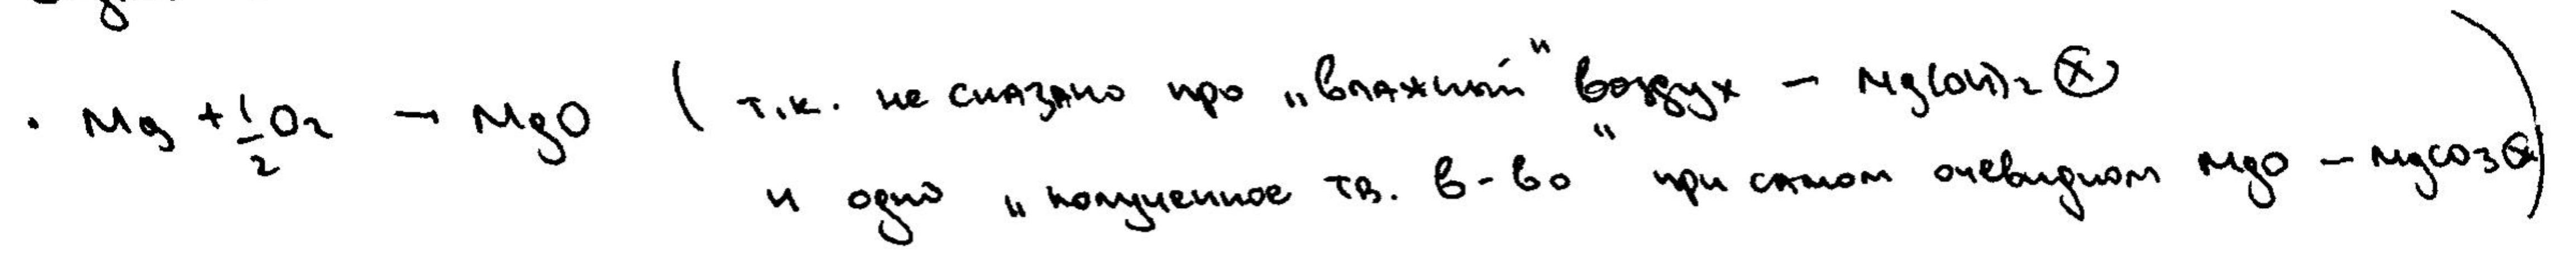 · Mg + 1/2 O2 → MgO ( т.к. не сказано про „влажный" воздух – Mg(OH)2 ⊗
и одно „полученное тв. в-во" при самом очевидном MgO – MgCO3 ⊗ )